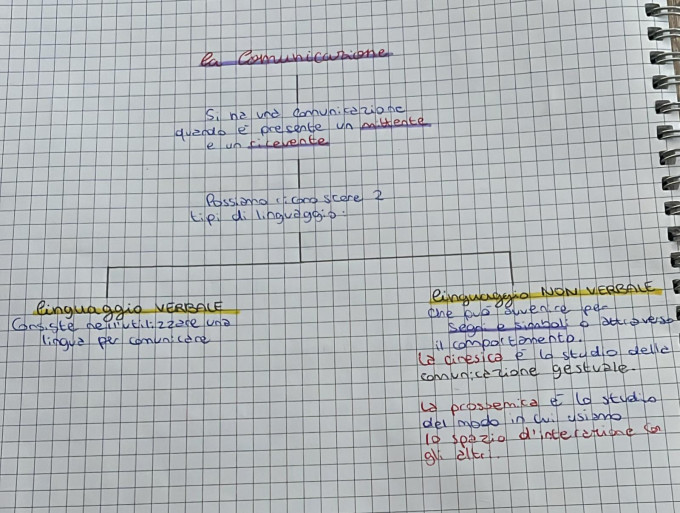 la comunicazione
Si ha una comunicazione
quando è presente un mittente
e un ricevente
Possiamo riconoscere 2
tipi di linguaggio:
linguaggio VERBALE
Consiste nell'utilizzare una
lingua per comunicare
linguaggio NON VERBALE
che può avvenire per
segni e simboli o attraverso
il comportamento.
La cinesica è lo studio della
comunicazione gestuale.
La prossemica è lo studio
del modo in cui usiamo
lo spazio d'interazione con
gli altri.